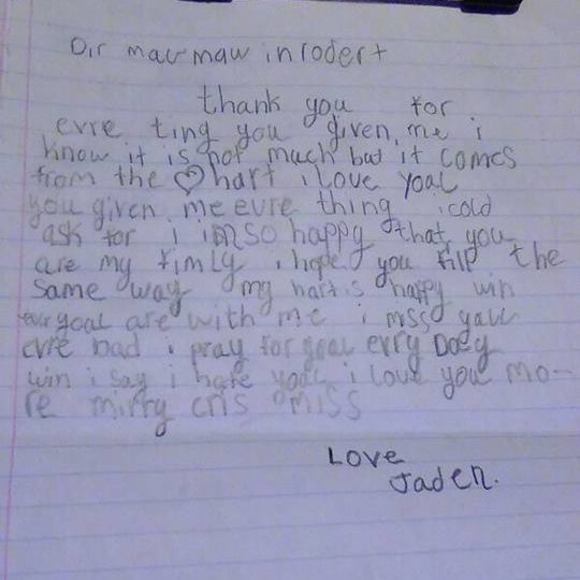 Dir maw maw in roder t
thank you for
evre ting you given me i
know it is not much but it comes
from the hart i love yoal
you given me evre thing i cold
ask for i im so happy that you
are my fimly i hope you fill the
same way my hart is happy win
yoal are with me i miss yall
evre bad i pray for yoal evry Doey
win i say i hate yoal i love you mo-
re mirry cris miss
Love
Jaden.